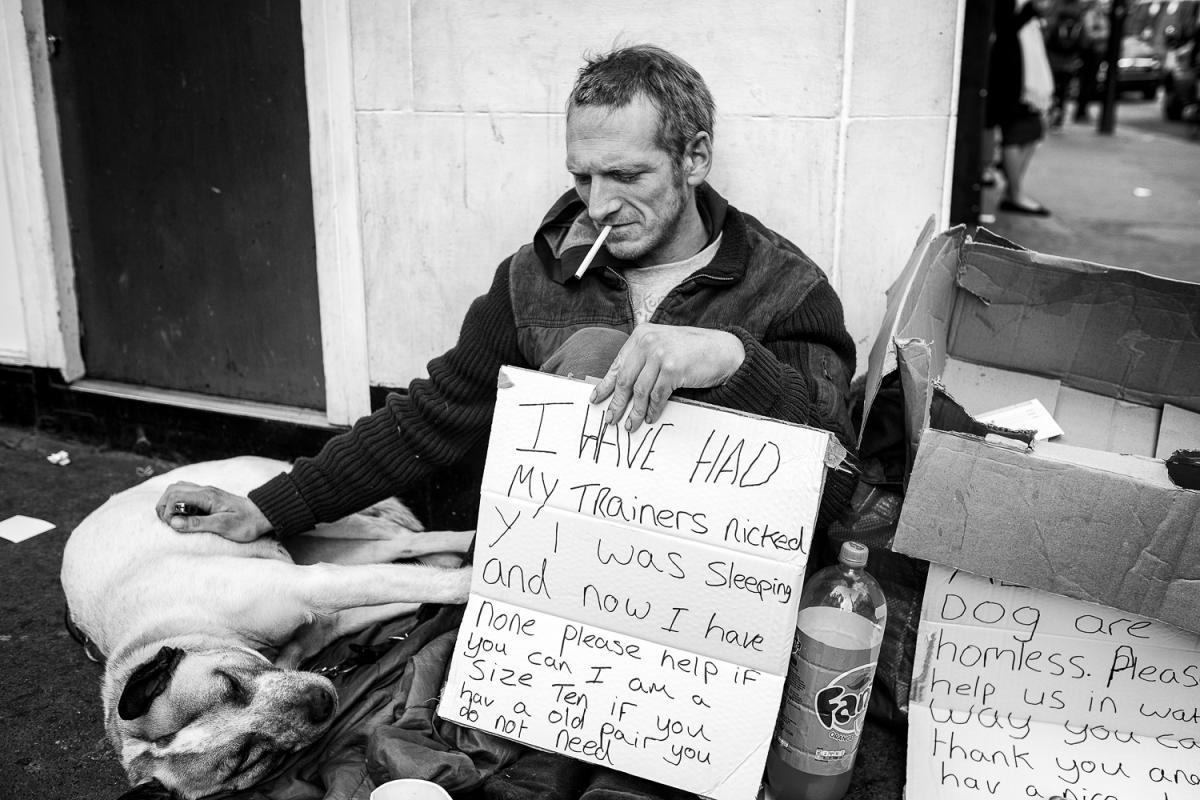 I HAVE HAD
MY TRainers nicked
Y I was Sleeping
and now I have
None please help if
you can I am a
Size Ten if you
hav a old pair you
do not need
Fan
ORANGE
Dog are
homless. Pleas
help us in wat
way you ca
thank you an
hav a nice